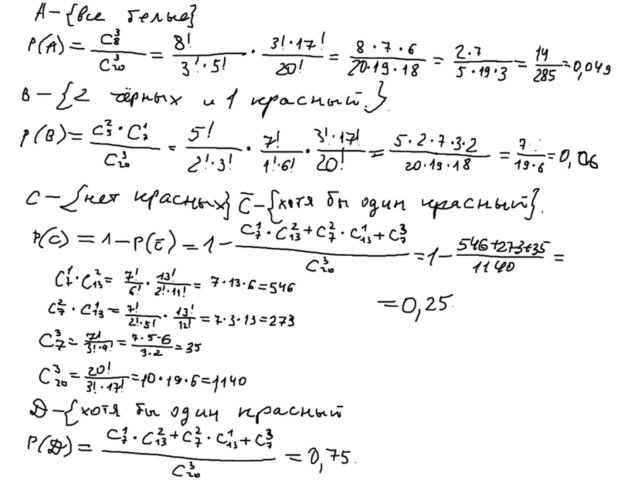 А – {все белые}
P(A) = C₈³ / C₂₀³ = 8! / (3!·5!) · (3!·17!) / 20! = (8·7·6) / (20·19·18) = (2·7) / (5·19·3) = 14/285 = 0,049
B – {2 чёрных и 1 красный.}
P(B) = (C₅²·C₇¹) / C₂₀³ = 5! / (2!·3!) · 7! / (1!·6!) · (3!·17!) / 20! = (5·2·7·3·2) / (20·19·18) = 7 / (19·6) = 0,06
C – {нет красных} C̅ – {хотя бы один красный}.
P(C) = 1 – P(C̅) = 1 – (C₇¹·C₁₃² + C₇²·C₁₃¹ + C₇³) / C₂₀³ = 1 – (546+273+35) / 1140 =
= 0,25
C₇¹·C₁₃² = 7!/6! · 13!/(2!·11!) = 7·13·6 = 546
C₇²·C₁₃¹ = 7!/(2!·5!) · 13!/12! = 7·3·13 = 273
C₇³ = 7!/(3!·4!) = (7·5·6)/(3·2) = 35
C₂₀³ = 20!/(3!·17!) = 10·19·6 = 1140
Д – {хотя бы один красный
P(Д) = (C₇¹·C₁₃² + C₇²·C₁₃¹ + C₇³) / C₂₀³ = 0,75.